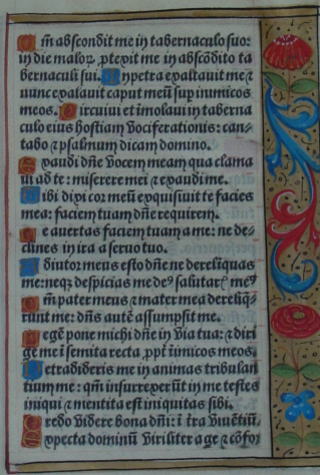 Qm̄ abscondit me in tabernaculo suo:
in die maloꝝ. ꝓtexit me in abscōdito ta
bernaculi sui. In petra exaltauit me ⁊
nunc exaltauit caput meū suꝑ inimicos
meos. Circuiui et īmolaui in taberna
culo eius hostiam vociferationis: can-
tabo ⁊ psalmum dicam domino.
Exaudi dn̄e vocem meam qua clama
ui ad te: miserere mei ⁊ exaudi me.
Tibi dixi cor meū exquisiuit te facies
mea: faciem tuam dn̄e requirem.
Ne auertas faciem tuam a me: ne de-
clines in ira a seruo tuo.
Adiutor meus esto dn̄e ne derelīquas
me: neqꝫ despicias me deꝰ salutarꝭ meꝰ
Qm̄ pater meus ⁊ mater mea derelīq-
runt me: dn̄s autē assumpsit me.
Legē pone michi dn̄e in via tua: ⁊ diri
ge me ī semita recta ꝓpt̄ inimicos meos.
Ne tradideris me in animas tribulan
tium me: qm̄ insurrexerūt in me testes
iniqui ⁊ mentita est iniquitas sibi.
Credo videre bona dn̄i: ī t̄ra viuētiū.
Expecta dominū viriliter age ⁊ cōfor